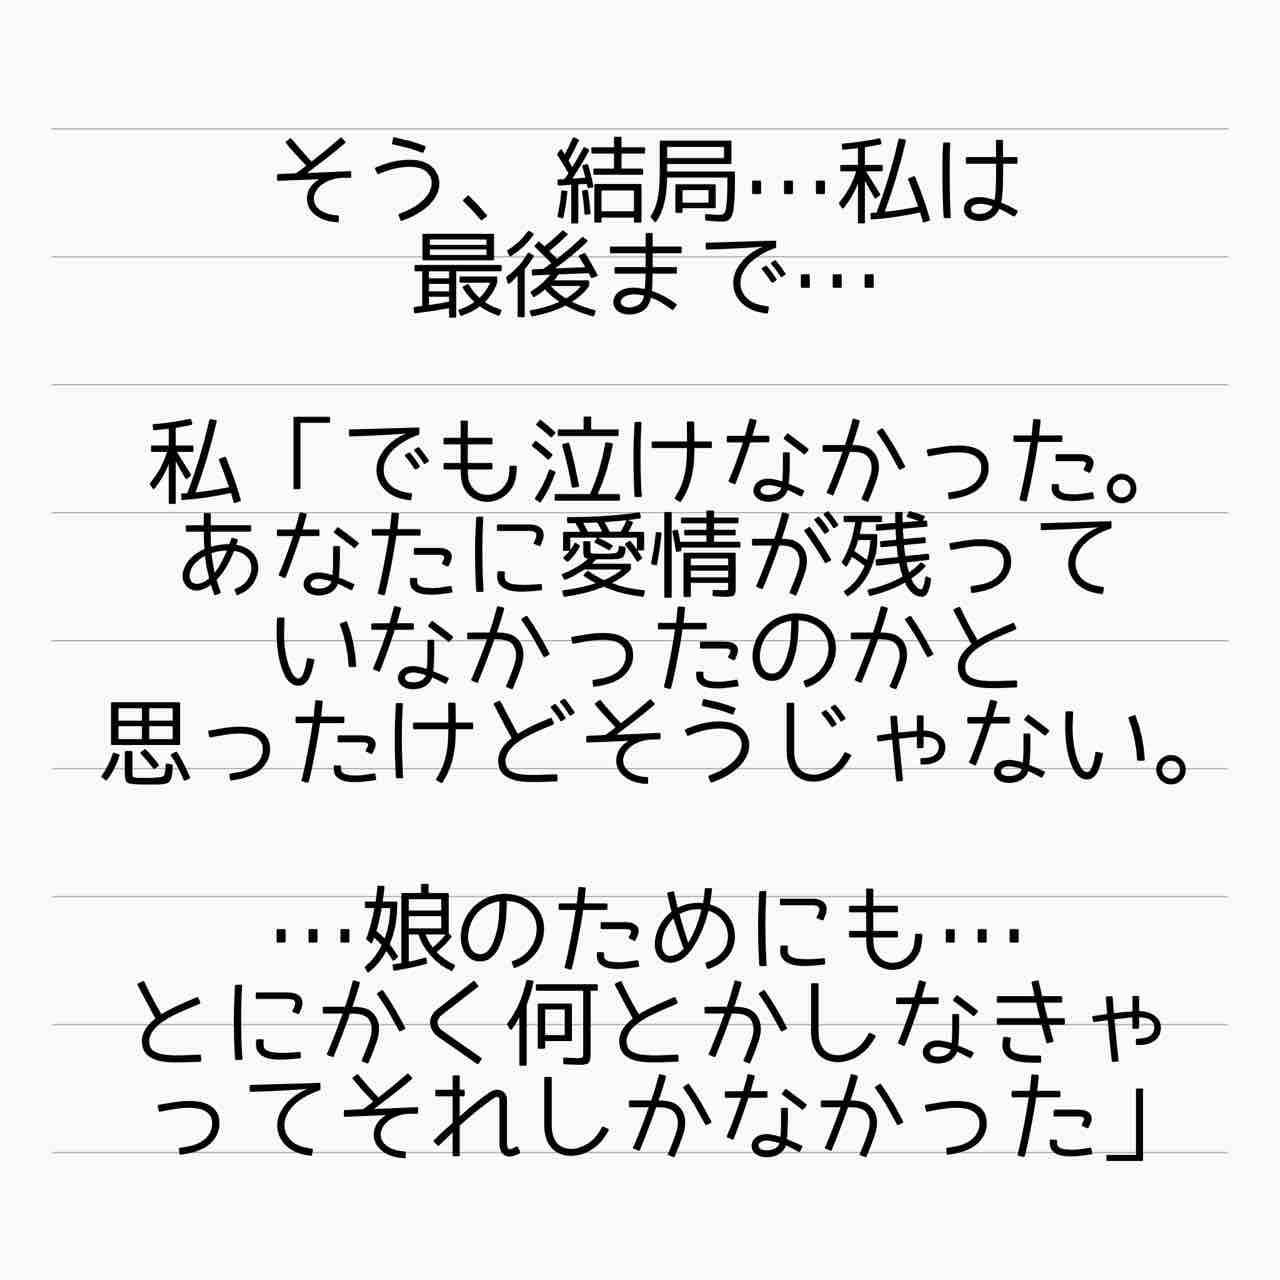 そう、結局…私は
最後まで…
私「でも泣けなかった。
あなたに愛情が残って
いなかったのかと
思ったけどそうじゃない。
…娘のためにも…
とにかく何とかしなきゃ
ってそれしかなかった」